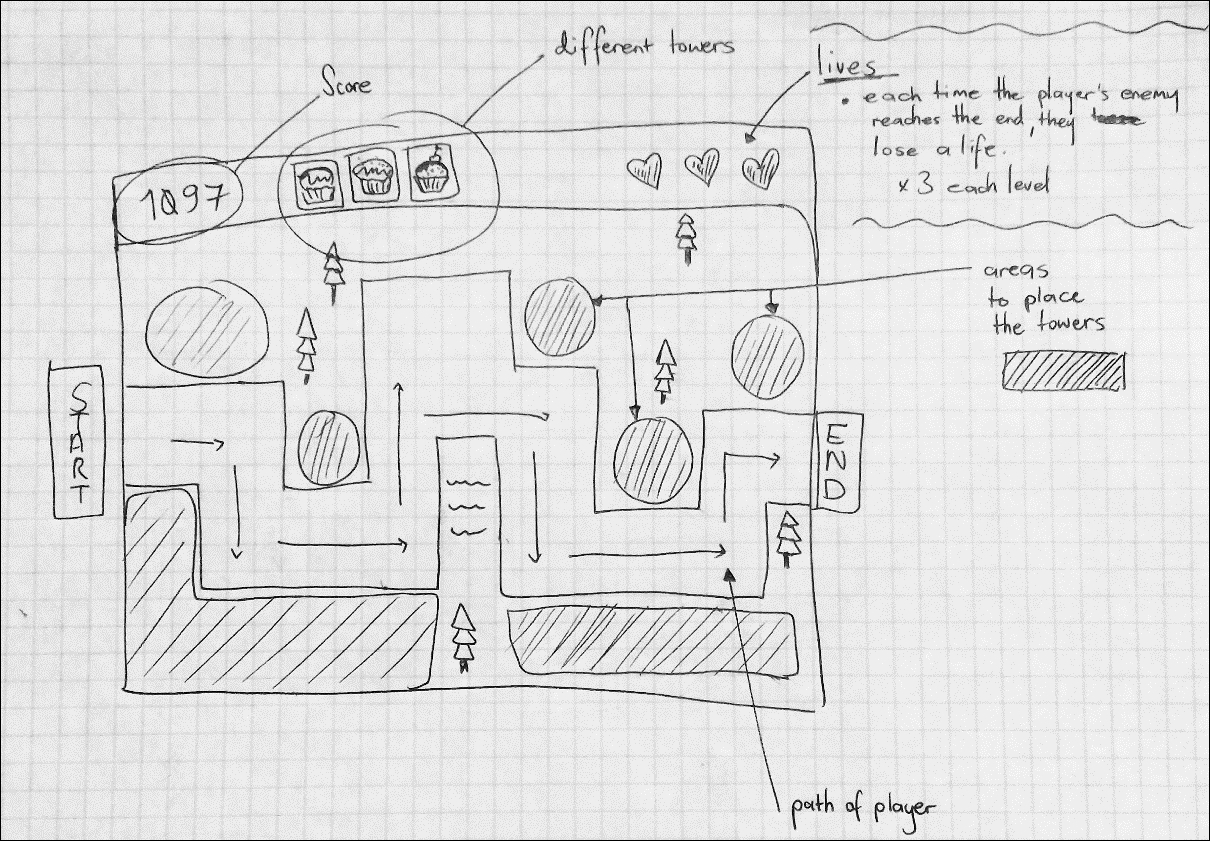 different towers
Score
lives
• each time the player's enemy
reaches the end, they
lose a life.
x 3 each level
1097
areas
to place
the towers
START
END
path of player